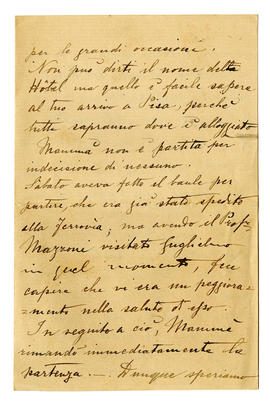 per le grandi occasioni.
Non può dirti il nome della
Hôtel ma quello è facile sapere
al tuo arrivo a Pisa, perchè
tutti sapranno dove è alloggiato
Mammà non è partita per
indecisione di nessuno.
Sabato aveva fatto il baule per
partire, che era già stato spedito
alla Ferrovia; ma avendo il Prof.
Mazzoni visitato Guglielmo
in quel momento, fece
capire che ve era un peggiora-
mento nella salute di
In seguito a ciò, Mammà
rimandò immediatamente la
partenza .... Dunque speriamo